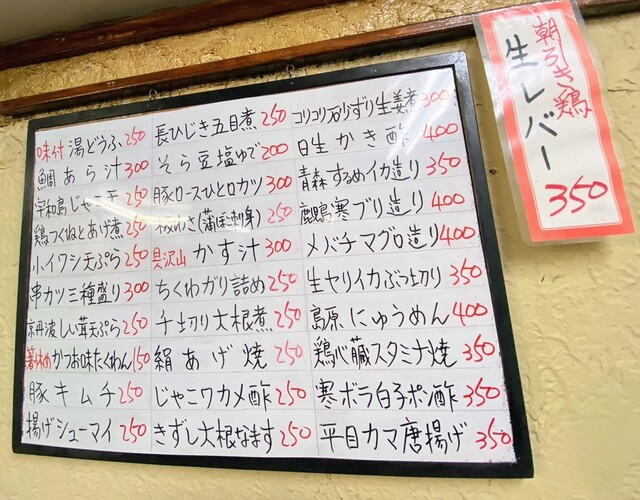 味付 湯どうふ 250
鯛 あら 汁 300
宇和島じゃこ天 250
鶏つくねとあげ煮 250
小イワシ天ぷら 250
串カツ三種盛り 300
京丹波しい茸天ぷら 250
かつお味たくわん 150
豚キムチ 250
揚げシューマイ 250
長ひじき五目煮 250
そら豆塩ゆで 200
豚ロースひとロカツ 300
板わさ(蒲ぼこ刺身) 250
具沢山 かす汁 300
ちくわがり詰め 250
千切り大根煮 250
絹あげ焼 250
じゃこワカメ酢 250
きずし大根なます 250
コリコリ石少ずり生姜煮 300
日生 かき酢 400
青森するめイカ造り 350
鹿児島寒ブリ造り 400
メバチマグロ造り 400
生ヤリイカぶつ切り 350
島原にゅうめん 400
鶏心臓スタミナ焼 350
寒ボラ白子ポン酢 350
平目カマ唐揚げ 350
朝びき鶏
生レバー
350